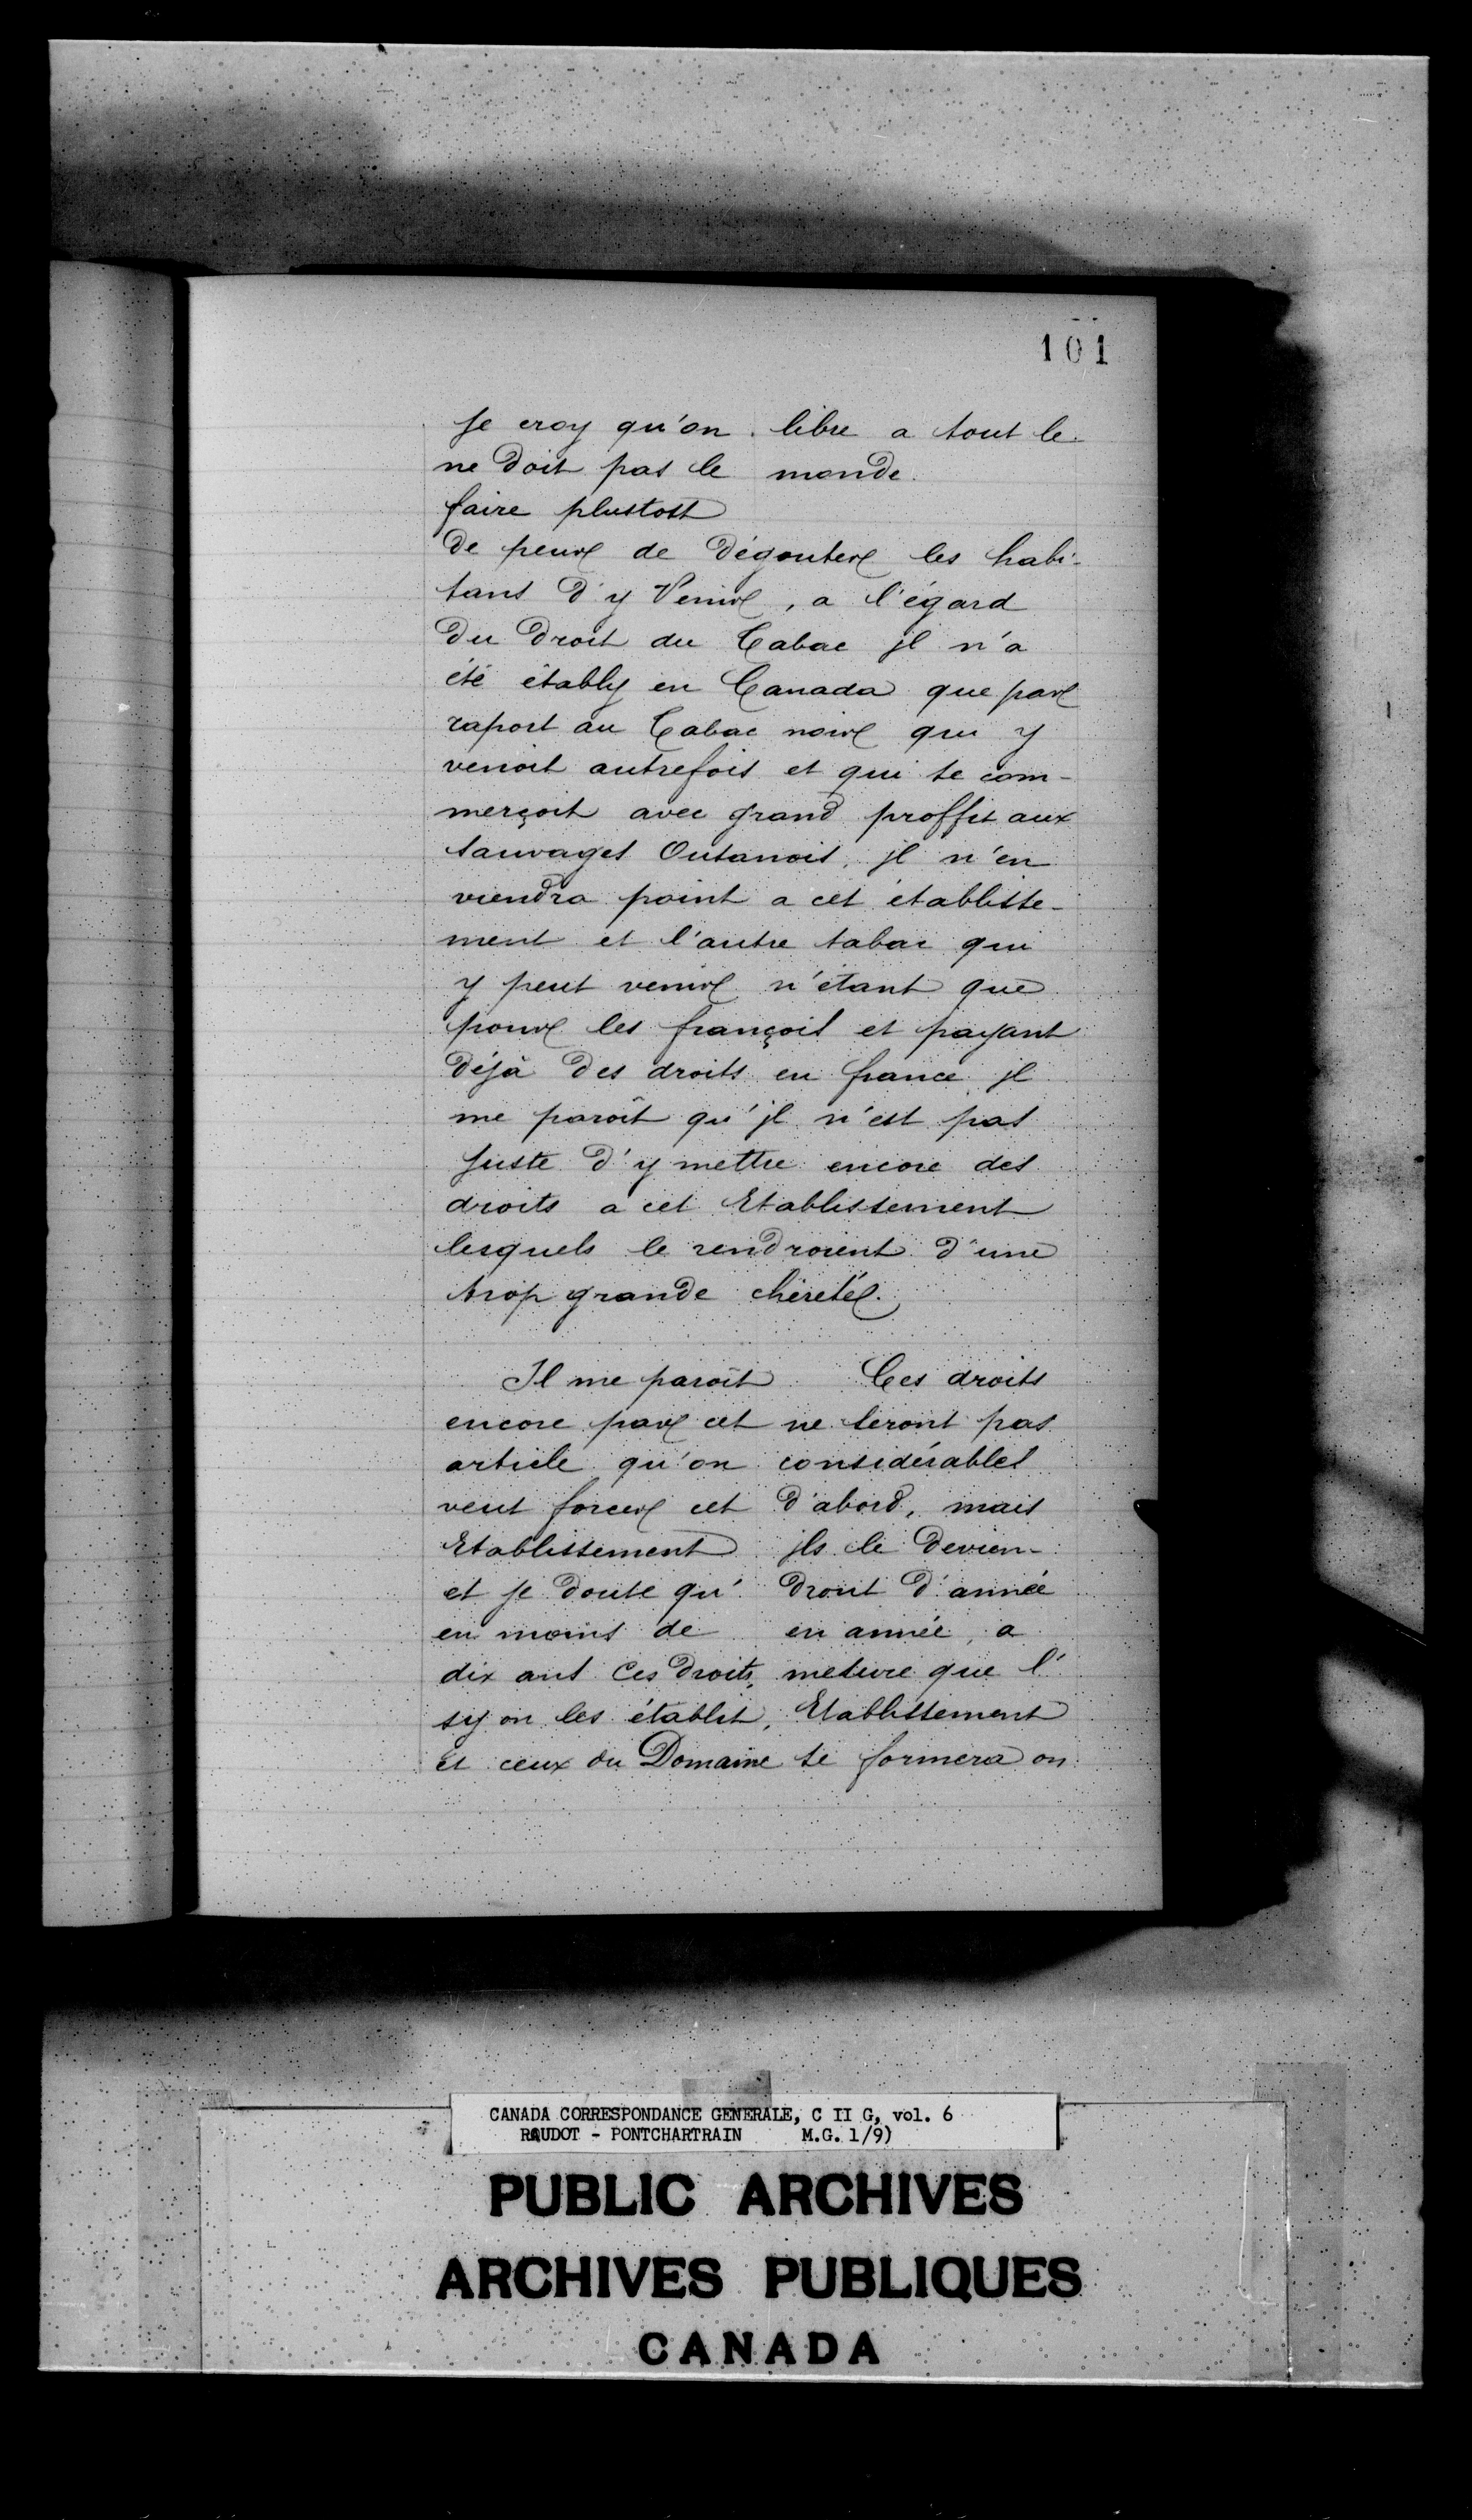 101
Je croy qu'on
ne doit pas le
faire plustost
libre a tout le
monde.
de peur de dégouter les habi-
tans d'y Venir, a l'égard
du droit du Tabac jl n'a
été établÿ en Canada que par
raport au Tabac noir qui y
venoit autrefois et qui se com-
merçoit avec grand proffit aux
sauvages Outanois, jl n'en
viendra point a cet établisse-
ment et l'autre tabac qui
y peut venir n'étant que
pour les françois et payant
déjà des droits en france jl
me paroît qu'jl n'est pas
juste d'y mettre encore des
droits a cet Etablissement
lesquels le rendroient d'une
trop grande chèreté.
Il me paroît
encore par cet
article qu'on
veut forcer cet
Etablissement
et je doute qu'
en moins de
dix ans Ces droits,
sy on les établit,
et ceux du Domaine
Ces droits
ne seront pas
considérables
d'abord, mais
jls le devien-
dront d'année
en année, a
mesure que l'
Etablissement
se formera on
CANADA CORRESPONDANCE GENERALE, C II G, vol. 6
RAUDOT - PONTCHARTRAIN M.G. 1/9)
PUBLIC ARCHIVES
ARCHIVES PUBLIQUES
CANADA